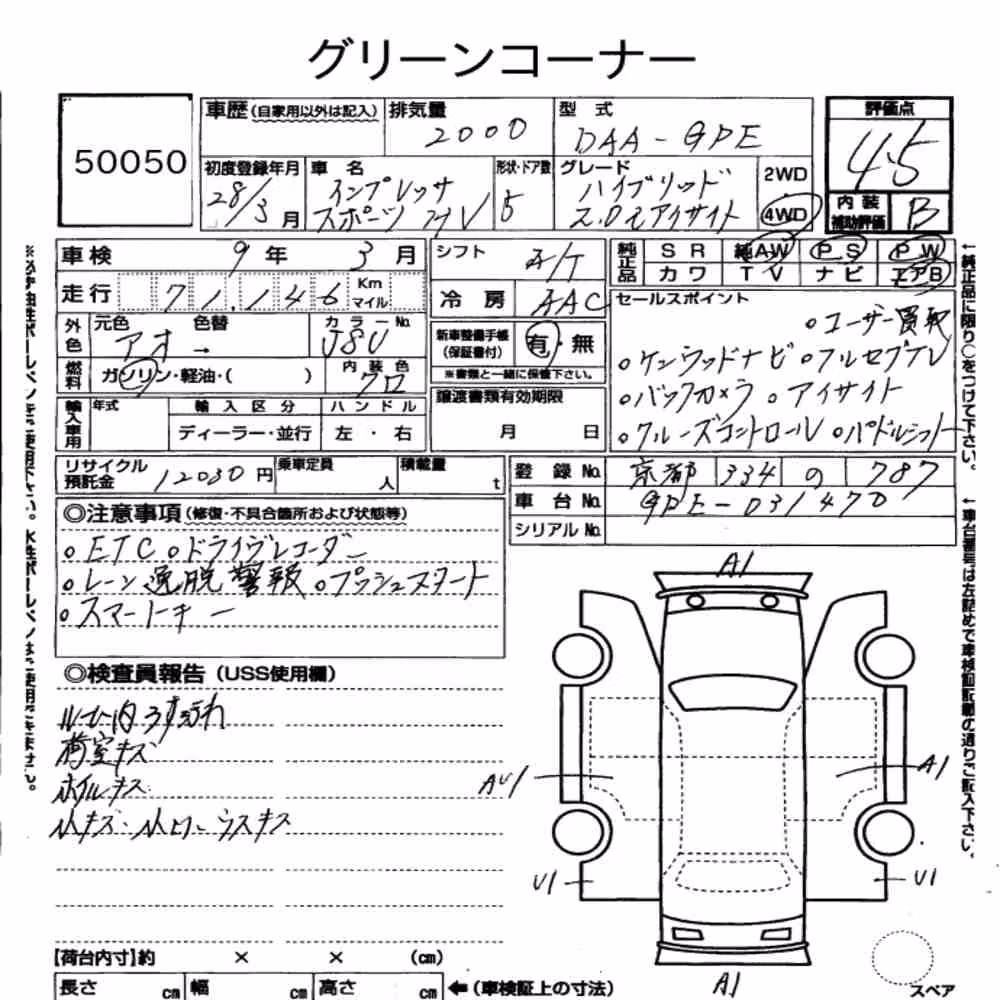 グリーンコーナー
50050
車歴(自家用以外は記入) 排気量 2000
型式 DAA-GPE
評価点 4.5
初度登録年月 28/3月
車名 インプレッサ スポーツ HV
形状・ドア数 5
グレード ハイブリッド 2.0i アイサイト
2WD 4WD
内装補助評価 B
車検 9年 3月
シフト
走行 71,146 Km マイル
冷房 AAC
純正品 SR 純AW PS PW
カワ TV ナビ エアB
外色 元色 アオ → 色替 カラーNo. J8U
燃料 ガソリン・軽油・( ) 内装色 クロ
新車整備手帳(保証書付) 有・無
※書類と一緒に保管下さい。
セールスポイント
○ユーザー買取
○ケンウッドナビ ○フルセグTV
○バックカメラ ○アイサイト
○クルーズコントロール ○パドルシフト
輸入車用 年式 輸入区分 ディーラー・並行 ハンドル 左・右
譲渡書類有効期限 月 日
リサイクル預託金 12030円 乗車定員 人 積載量 t
登録No. 京都 334 の 787
車台No. GPE-031470
シリアルNo.
◎注意事項(修復・不具合箇所および状態等)
○ETC ○ドライブレコーダー
○レーン逸脱警報 ○プッシュスタート
○スマートキー
◎検査員報告(USS使用欄)
荷室キズ
ホイルキズ
A1
A1
U1
U1
A1
【荷台内寸】約 × × (cm)
長さ cm 幅 cm 高さ cm ←(車検証上の寸法)
スペア
←純正品に限り○をつけて下さい。
←車台番号は左詰めで車検証記載の通りご記入下さい。
※必ず油性ボールペンをご使用下さい。水性ボールペンはご使用できません。